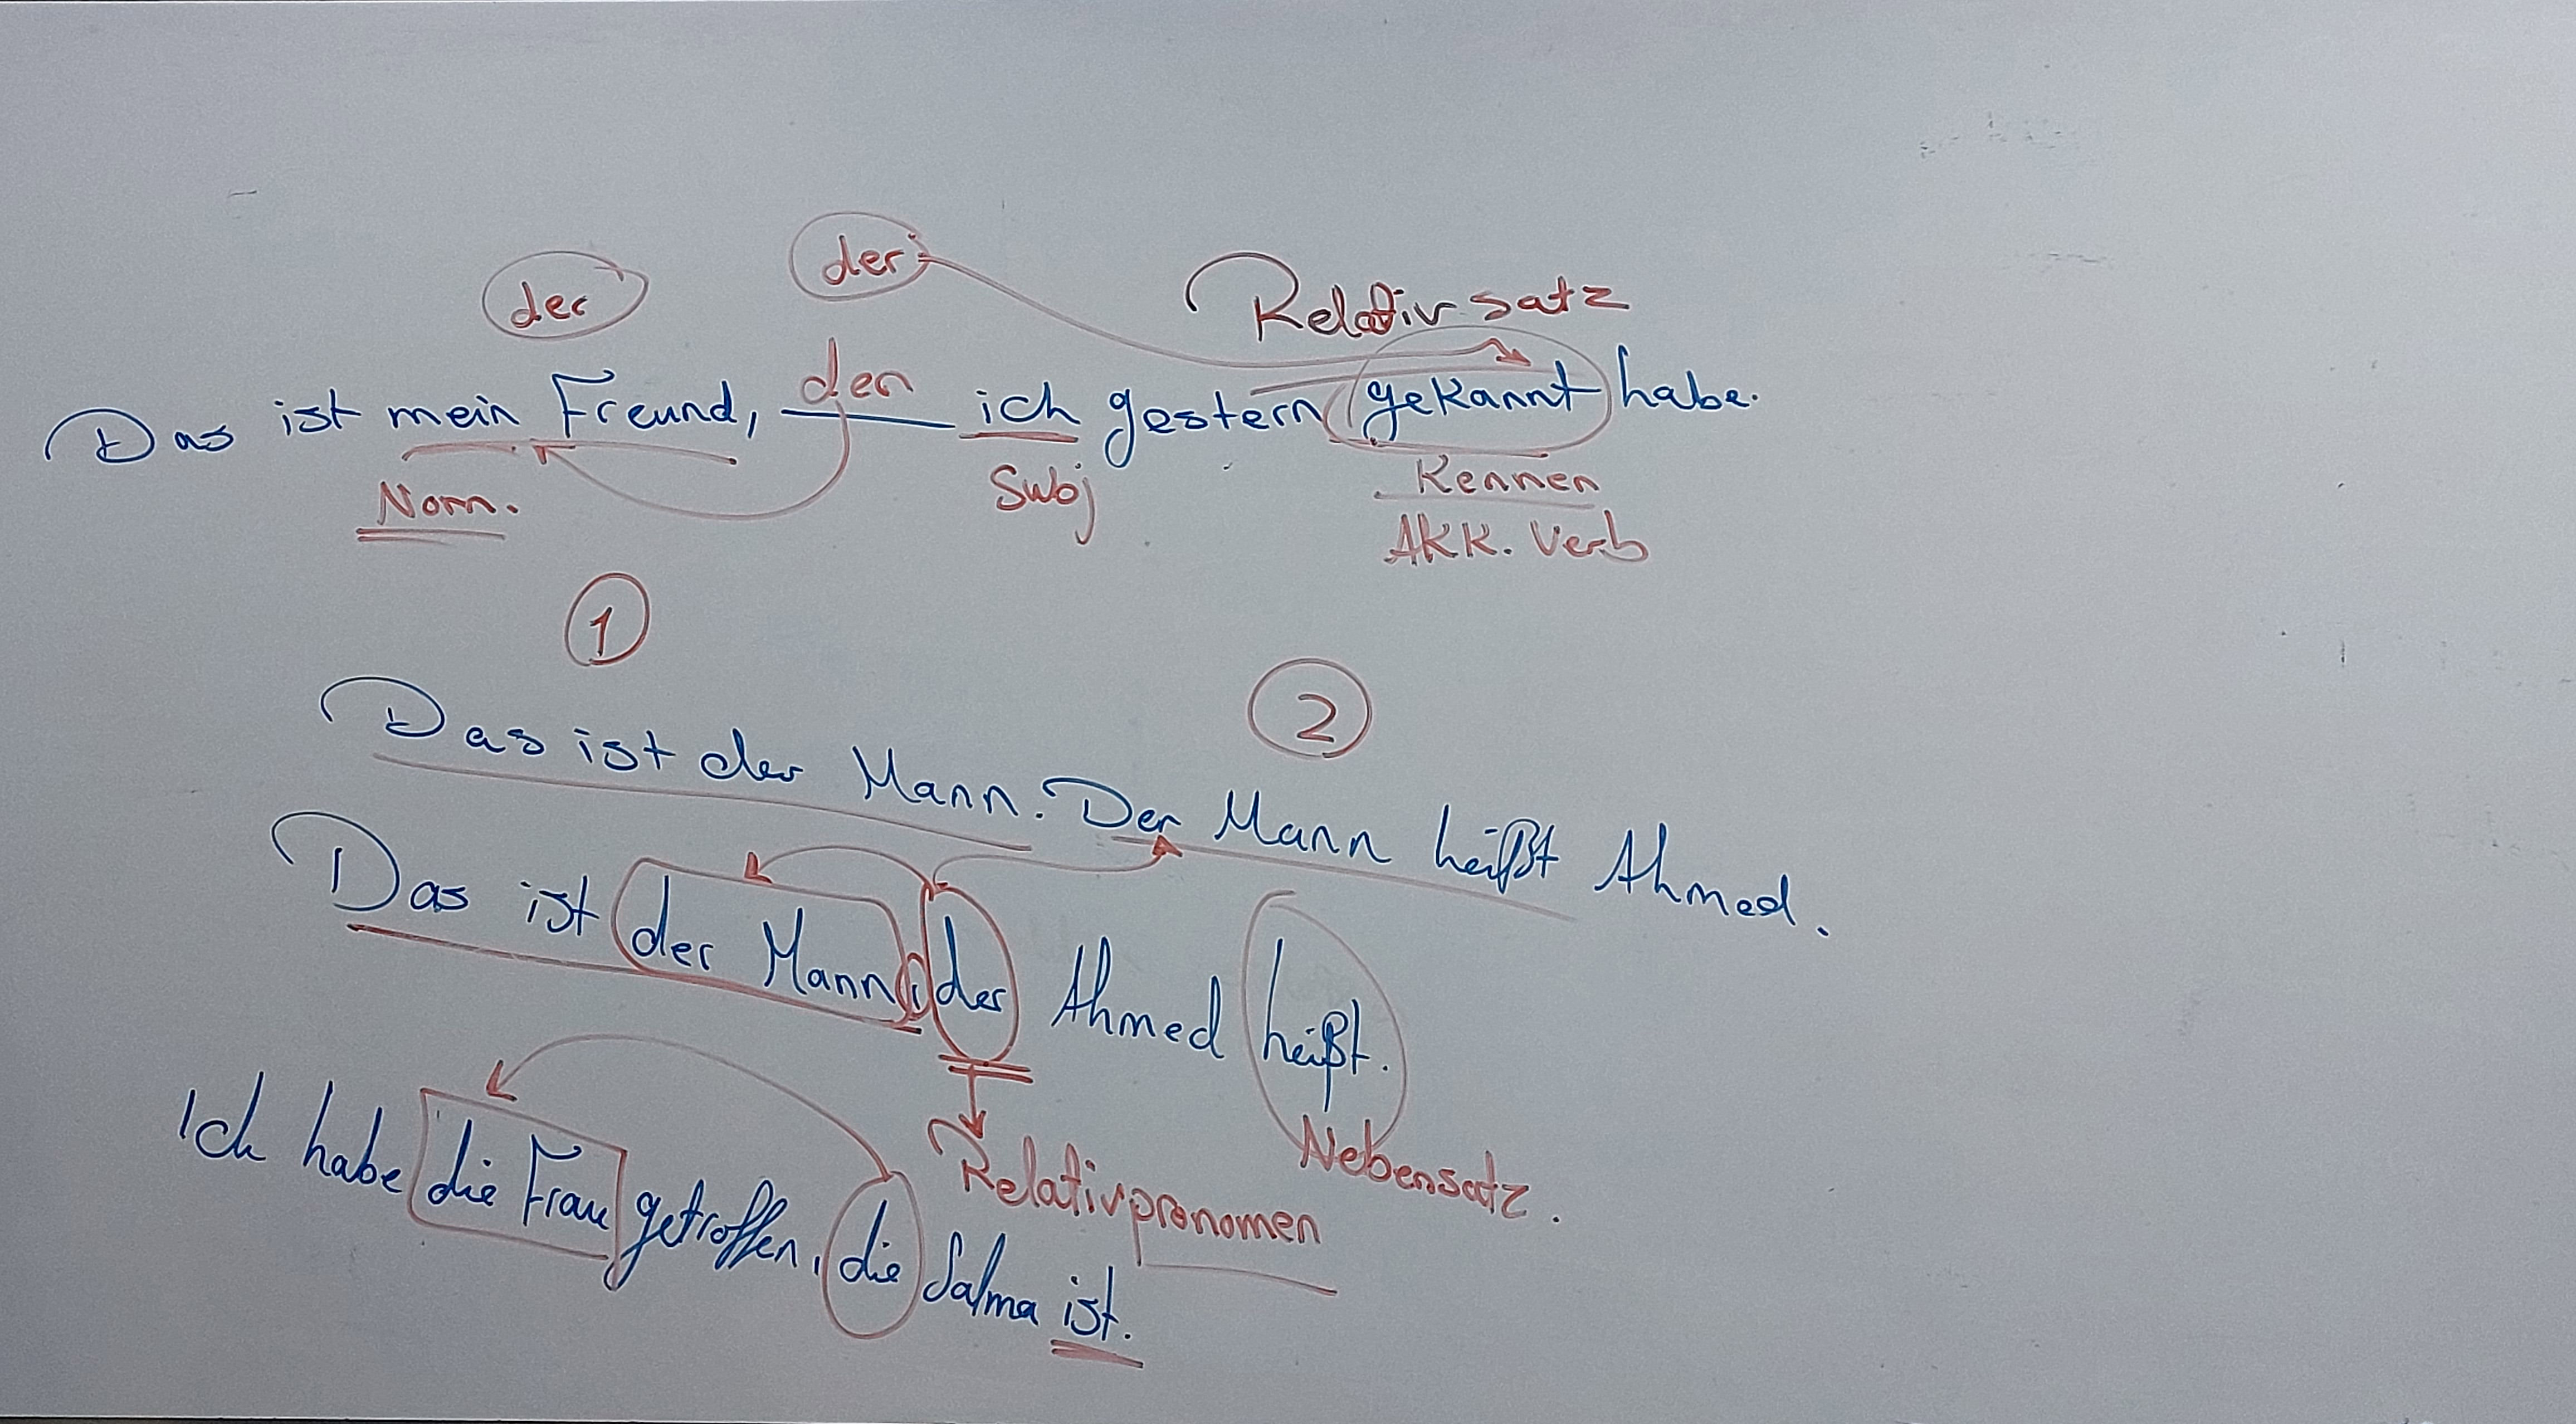 der der
Relativsatz
Das ist mein Freund, den ich gestern gekannt habe.
Nom. Subj Kennen
AKK. Verb
1
2
Das ist der Mann. Der Mann heißt Ahmed.
Das ist der Mann, der Ahmed heißt.
Nebensatz.
Relativpronomen
Ich habe die Frau getroffen, die Salma ist.